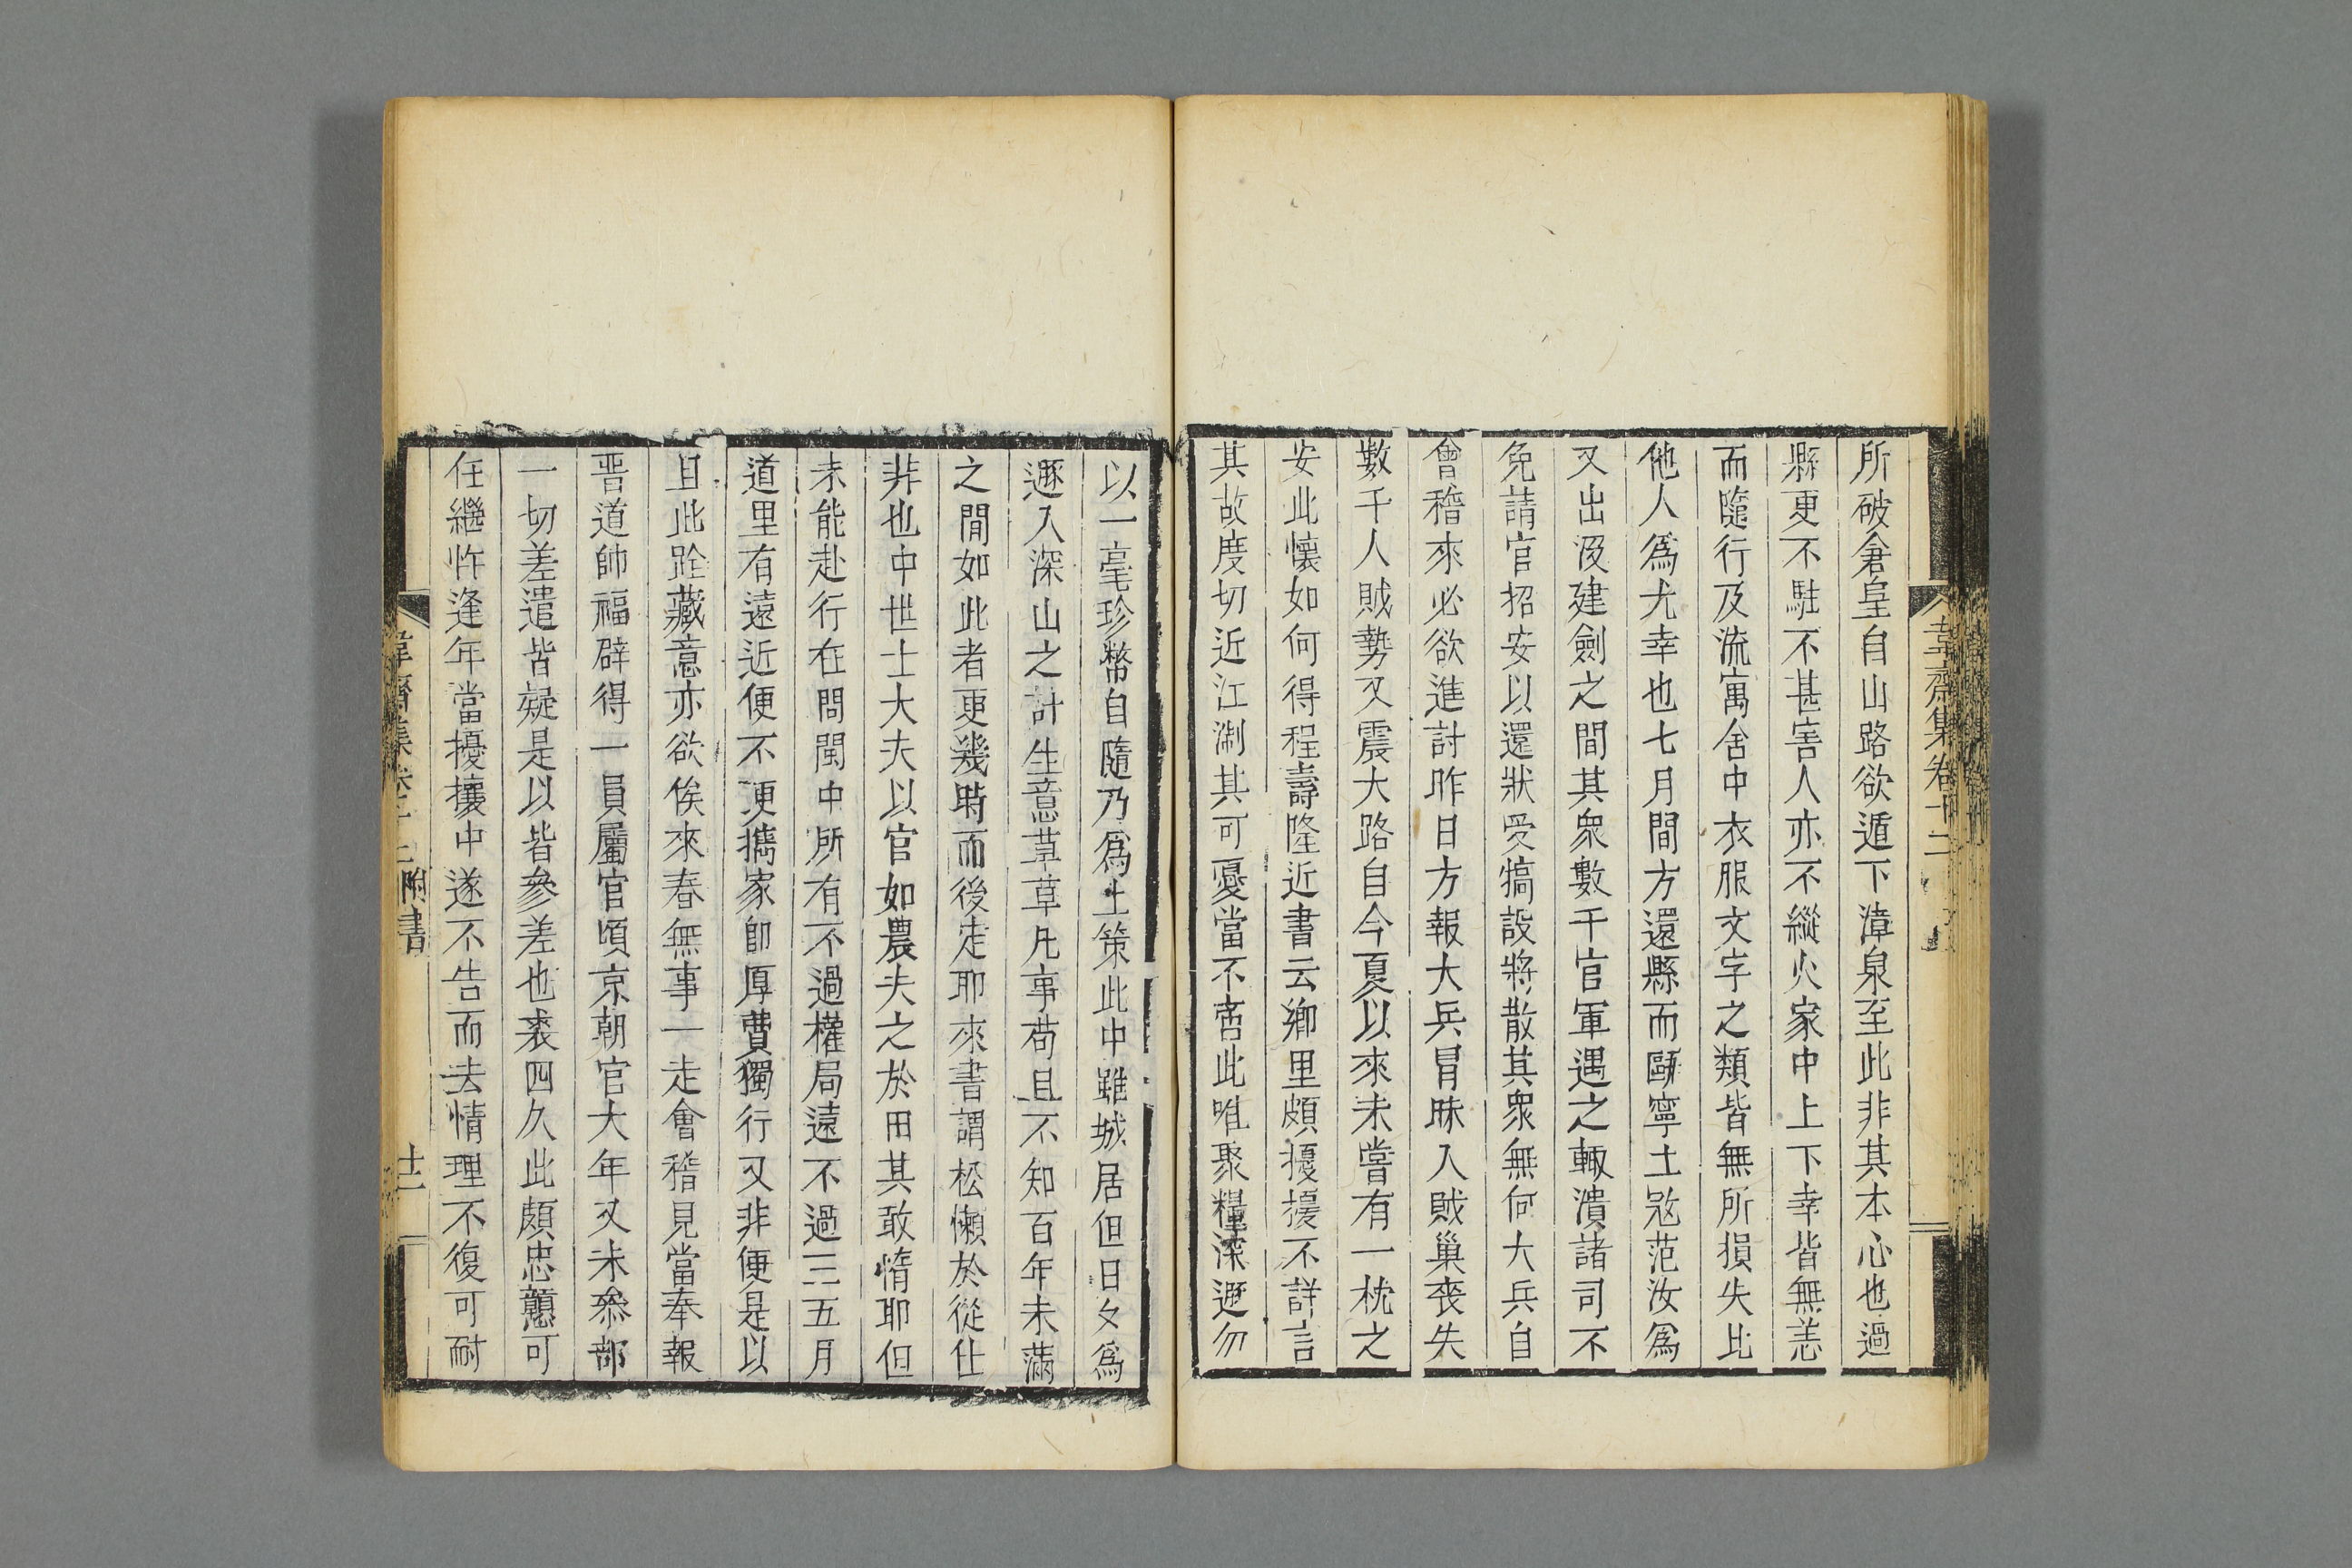 所破倉皇自山路欲遁下漳泉至此非其本心也過
縣更不駐不甚害人亦不縱火家中上下幸皆無恙
而隨行及流寓舍中衣服文字之類皆無所損失比
他人爲尤幸也七月間方還縣而甌寧土冦范汝爲
又出没建劍之間其衆數千官軍遇之輒潰諸司不
免請官招安以還狀受犒設將散其衆無何大兵自
會稽來必欲進討昨日方報大兵冐昧入賊巢䘮失
數千人賊勢又震大路自今夏以來未嘗有一枕之
安此懷如何得程壽隆近書云鄉里頗擾擾不詳言
其故度切近江淛其可憂當不啻此唯聚糧深遯勿
以一毫珍幣自隨乃爲上策此中雖城居但日夕爲
遯入深山之計生意草草凡事苟且不知百年未滿
之間如此者更幾時而後定耶來書謂松懶於從仕
非也中世士大夫以官如農夫之於田其敢惰耶但
未能赴行在問閩中所有不過權局遠不過三五月
道里有遠近便不便攜家卽厚費獨行又非便是以
且此跧藏意亦欲俟來春無事一走會稽見當奉報
晋道帥福辟得一員屬官頃京朝官大年又未叅部
一切差遣皆礙是以皆參差也裘四久此頗忠戇可
任繼忤逢年當擾攘中遂不告而去情理不復可耐
韋齋集卷十二
韋齋集卷十二 附書
十二